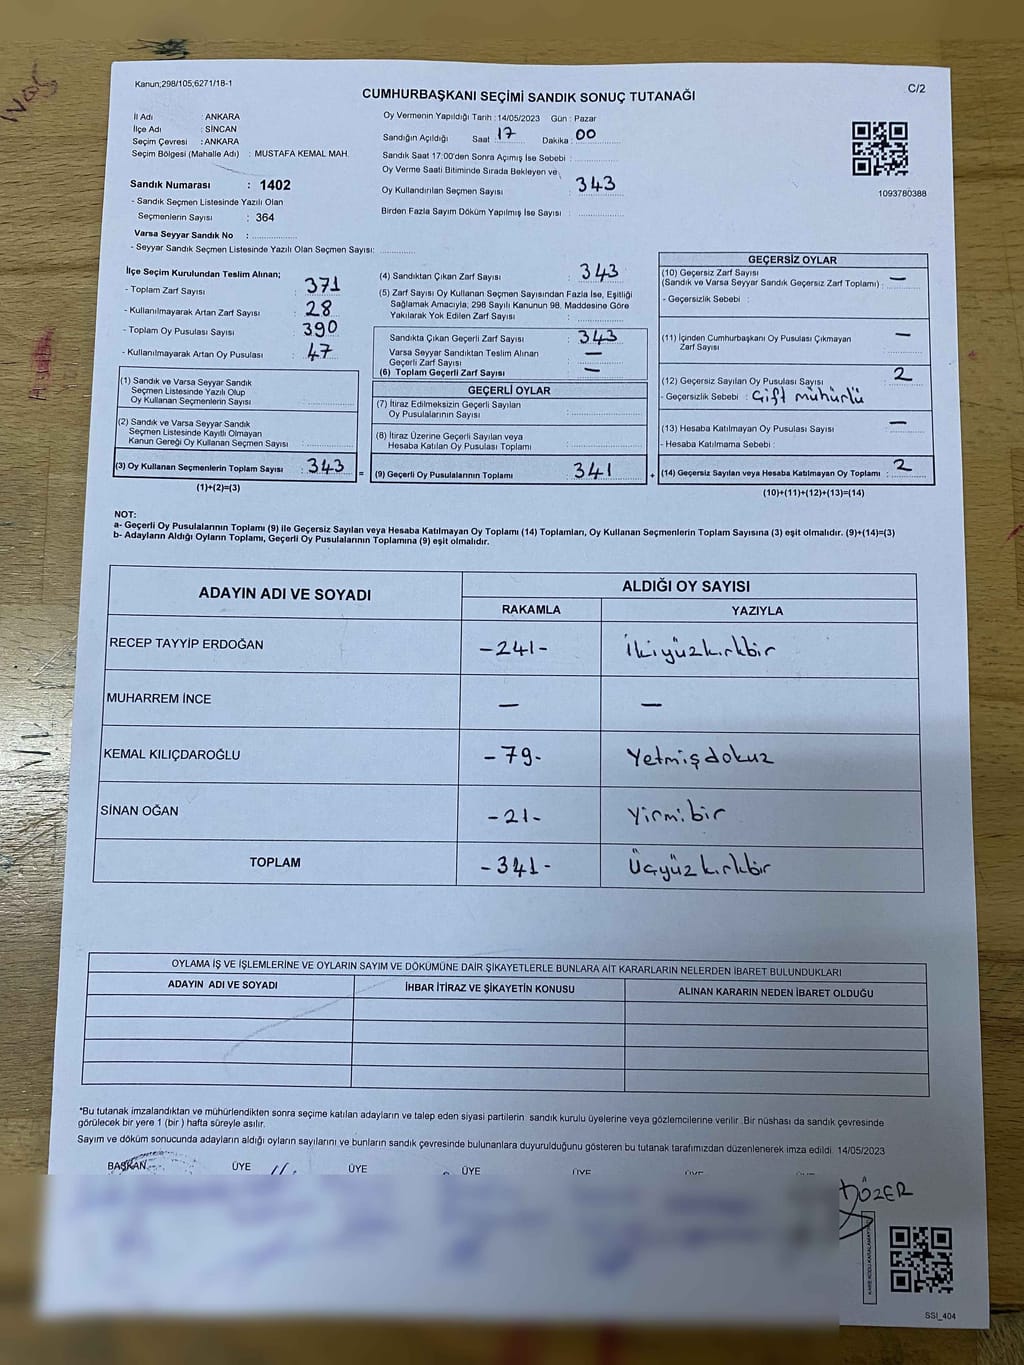 Kanun;298/105;6271/18-1
C/2
CUMHURBAŞKANI SEÇİMİ SANDIK SONUÇ TUTANAĞI
İl Adı : ANKARA
İlçe Adı : SİNCAN
Seçim Çevresi : ANKARA
Seçim Bölgesi (Mahalle Adı) : MUSTAFA KEMAL MAH.
Sandık Numarası : 1402
- Sandık Seçmen Listesinde Yazılı Olan
Seçmenlerin Sayısı : 364
Varsa Seyyar Sandık No :
- Seyyar Sandık Seçmen Listesinde Yazılı Olan Seçmen Sayısı:
Oy Vermenin Yapıldığı Tarih : 14/05/2023 Gün : Pazar
Sandığın Açıldığı Saat 17 Dakika : 00
Sandık Saat 17:00'den Sonra Açımış İse Sebebi :
Oy Verme Saati Bitiminde Sırada Bekleyen ve
Oy Kullandırılan Seçmen Sayısı : 343
Birden Fazla Sayım Döküm Yapılmış İse Sayısı :
1093780388
İlçe Seçim Kurulundan Teslim Alınan;
- Toplam Zarf Sayısı : 371
- Kullanılmayarak Artan Zarf Sayısı : 28
- Toplam Oy Pusulası Sayısı : 390
- Kullanılmayarak Artan Oy Pusulası : 47
(1) Sandık ve Varsa Seyyar Sandık
Seçmen Listesinde Yazılı Olup
Oy Kullanan Seçmenlerin Sayısı :
(2) Sandık ve Varsa Seyyar Sandık
Seçmen Listesinde Kayıtlı Olmayan
Kanun Gereği Oy Kullanan Seçmen Sayısı :
(3) Oy Kullanan Seçmenlerin Toplam Sayısı : 343
(1)+(2)=(3)
=
(4) Sandıktan Çıkan Zarf Sayısı : 343
(5) Zarf Sayısı Oy Kullanan Seçmen Sayısından Fazla İse, Eşitliği
Sağlamak Amacıyla; 298 Sayılı Kanunun 98. Maddesine Göre
Yakılarak Yok Edilen Zarf Sayısı :
Sandıkta Çıkan Geçerli Zarf Sayısı : 343
Varsa Seyyar Sandıktan Teslim Alınan
Geçerli Zarf Sayısı : —
(6) Toplam Geçerli Zarf Sayısı : —
GEÇERLİ OYLAR
(7) İtiraz Edilmeksizin Geçerli Sayılan
Oy Pusulalarının Sayısı :
(8) İtiraz Üzerine Geçerli Sayılan veya
Hesaba Katılan Oy Pusulası Toplamı :
(9) Geçerli Oy Pusulalarının Toplamı : 341
+
GEÇERSİZ OYLAR
(10) Geçersiz Zarf Sayısı —
(Sandık ve Varsa Seyyar Sandık Geçersiz Zarf Toplamı) :
- Geçersizlik Sebebi :
(11) İçinden Cumhurbaşkanı Oy Pusulası Çıkmayan —
Zarf Sayısı :
(12) Geçersiz Sayılan Oy Pusulası Sayısı : 2
- Geçersizlik Sebebi : Çift mühürlü
(13) Hesaba Katılmayan Oy Pusulası Sayısı : —
- Hesaba Katılmama Sebebi :
(14) Geçersiz Sayılan veya Hesaba Katılmayan Oy Toplamı : 2
(10)+(11)+(12)+(13)=(14)
NOT:
a- Geçerli Oy Pusulalarının Toplamı (9) ile Geçersiz Sayılan veya Hesaba Katılmayan Oy Toplamı (14) Toplamları, Oy Kullanan Seçmenlerin Toplam Sayısına (3) eşit olmalıdır. (9)+(14)=(3)
b- Adayların Aldığı Oyların Toplamı, Geçerli Oy Pusulalarının Toplamına (9) eşit olmalıdır.
ADAYIN ADI VE SOYADI
ALDIĞI OY SAYISI
RAKAMLA YAZIYLA
RECEP TAYYİP ERDOĞAN -241- İkiyüzkırkbir
MUHARREM İNCE — —
KEMAL KILIÇDAROĞLU -79- Yetmişdokuz
SİNAN OĞAN -21- Yirmibir
TOPLAM -341- Üçyüzkırkbir
OYLAMA İŞ VE İŞLEMLERİNE VE OYLARIN SAYIM VE DÖKÜMÜNE DAİR ŞİKAYETLERLE BUNLARA AİT KARARLARIN NELERDEN İBARET BULUNDUKLARI
ADAYIN ADI VE SOYADI İHBAR İTİRAZ VE ŞİKAYETİN KONUSU ALINAN KARARIN NEDEN İBARET OLDUĞU
*Bu tutanak imzalandıktan ve mühürlendikten sonra seçime katılan adayların ve talep eden siyasi partilerin sandık kurulu üyelerine veya gözlemcilerine verilir. Bir nüshası da sandık çevresinde
görülecek bir yere 1 (bir ) hafta süreyle asılır.
Sayım ve döküm sonucunda adayların aldığı oyların sayılarını ve bunların sandık çevresinde bulunanlara duyurulduğunu gösteren bu tutanak tarafımızdan düzenlenerek imza edildi. 14/05/2023
BAŞKAN ÜYE ÜYE ÜYE ÜYE
ÖZER
SSI_404